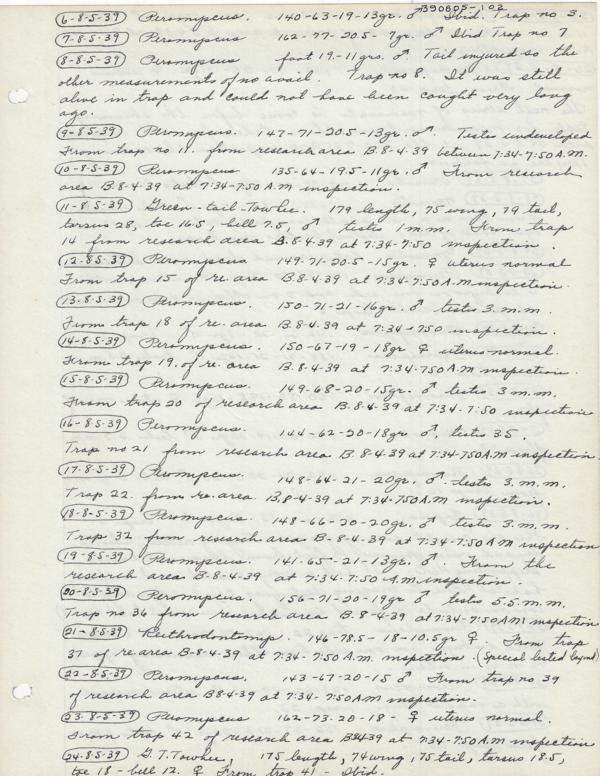 B90805-102
6-8-5-39 Peromyscus. 140-63-19-13gr. ♂ Ibid. Trap no 3.
7-8-5-39 Peromyscus 162-77-20.5-7gr. ♂ Ibid Trap no 7
8-8-5-39 Peromyscus foot 19.-11grs. ♂ Tail injured so the
other measurements of no avail. Trap no 8. It was still
alive in trap and could not have been caught very long
ago.
9-8-5-39 Peromyscus. 147-71-20.5-13gr. ♂. Testes undeveloped
From trap no 11. from research area B.8-4-39 between 7:34-7:50 A.M.
10-8-5-39 Peromyscus 135-64-19.5-11gr. ♂ From research
area B.8-4-39 at 7:34-7:50 A.M inspection.
11-8-5-39 Green-tail-Towhee. 179 length, 75 wing, 79 tail,
tarsus 28, toe 16.5, bill 7.5, ♂ testis 1 m.m. From trap
14 from research area B.8-4-39 at 7:34-7:50 inspection.
12-8-5-39 Peromyscus 149-71-20.5-15gr. ♀ uterus normal
From trap 15 of re. area B.8-4-39 at 7:34-7:50 A.M. inspection.
13-8-5-39 Peromyscus. 150-71-21-16gr. ♂ testis 3.m.m.
From trap 18 of re. area B.8-4-39 at 7:34-750 inspection.
14-8-5-39 Peromyscus. 150-67-19-18gr ♀ uterus-normal.
From trap 19. of re. area B.8-4-39 at 7:34-750 A.M inspection.
15-8-5-39 Peromyscus. 149-68-20-15gr. ♂ testis 3 m.m.
From trap 20 of research area B.8-4-39 at 7:34-7:50 inspection
16-8-5-39 Peromyscus. 144-62-20-18gr ♂, testis 35.
Trap no 21 from research area B.8-4-39 at 7:34-750 A.M inspection.
17-8-5-39 Peromyscus. 148-64-21-20gr. ♂ testis 3. m.m.
Trap 22. from re. area. B.8-4-39 at 7:34-750 A.M inspection.
18-8-5-39 Peromyscus. 148-66-20-20gr. ♂ testis 3.m.m.
Trap 32 from research area B-8-4-39 at 7:34-7:50 A.M inspection
19-8-5-39 Peromyscus. 141-65-21-13gr. ♂. From the
research area B-8-4-39 at 7:34-7:50 A.M. inspection.
20-8-5-39 Peromyscus. 156-71-20-19gr ♂ testis 5.5.m.m.
Trap no 36 from research area B.8-4-39 at 7:34-7:50 A.M inspection
21-8-5-39 Reithrodontomys. 146-78.5-18-10.5gr ♀. From trap
37 of re area B-8-4-39 at 7:34-7:50 A.M. inspection. (Special listed
22-8-5-39 Peromyscus. 143-67-20-15 ♂ From trap no 39
of research area B8-4-39 at 7:34-7:50 A.M inspection.
23-8-5-39 Peromyscus 162-73-20-18- ♀ uterus normal.
From trap 42 of research area B8439 at 7:34-7:50 A.M inspection
24-8-5-39 G.T. Towhee, 175 length, 74 wing, 75 tail, tarsus 18.5,
toe 18-bill 12. ♀ From trap 41-Ibid.